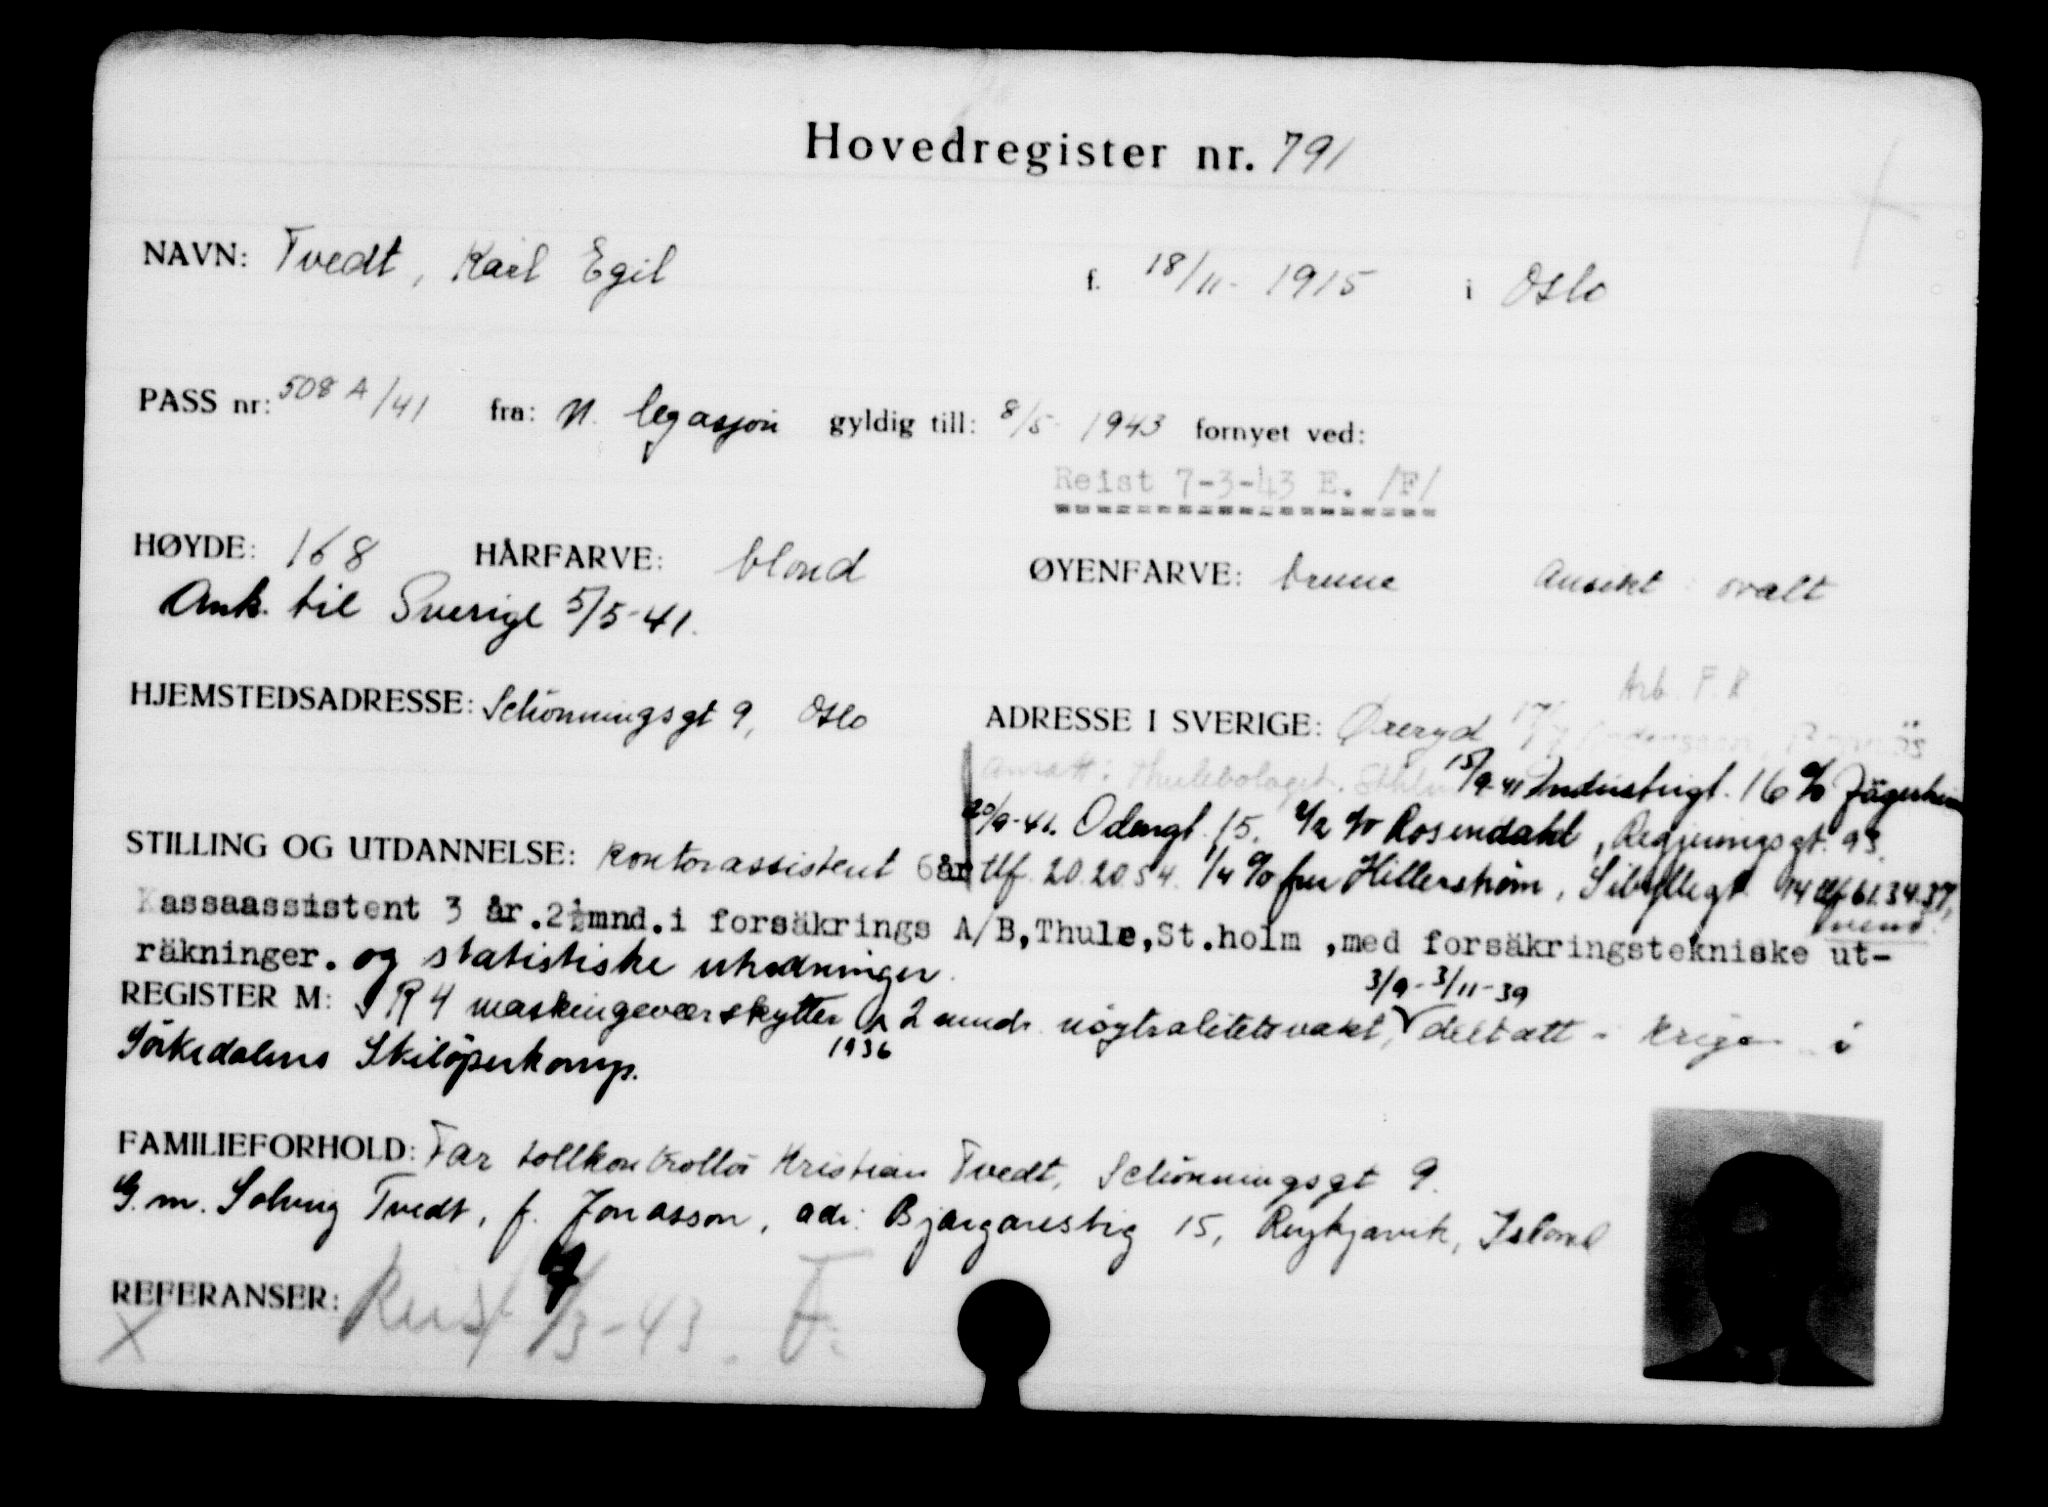 Hovedregister nr. 791
NAVN: Tvedt, Karl Egil f. 18/11- 1915 i Oslo
PASS nr: 508 A/41 fra: N. legasjon gyldig till: 8/5- 1943 fornyet ved:
Reist 7-3-43 E. /F/
HØYDE: 168 HÅRFARVE: blond ØYENFARVE: brune Ansikt: ovalt
Ank. til Sverige 5/5-41.
Arb. F.
HJEMSTEDSADRESSE: Schönningsgt 9, Oslo ADRESSE I SVERIGE: Øreryd
Ansatt: Thulebolaget. Sthlm 15/9-41 Industrigt. 16 c/o Jägerheim
20/9-41. Odengt. 15. c/o Rosendahl, Regjeringsgt. 93.
STILLING OG UTDANNELSE: Kontorassistent 6 år tlf. 20.20.54. 1/4 c/o fru Hillerström, Sibyllegt 14 tlf 61.34.37,
Kassaassistent 3 år.2½mnd.i forsäkrings A/B,Thule,St.holm ,med forsäkringstekniske ut-
räkninger. og statistiske utredninger.
REGISTER M: I R 4 maskingeværskytter 1936 2 mndr. nøytralitetsvakt, 3/9-3/11-39 deltatt i krigen i
Sörkedalens Skilöperkomp.
FAMILIEFORHOLD: Far tollkontrollör Kristian Tvedt, Schönningsgt 9.
G.m. Solveig Tvedt, f. Jonasson, adr: Bjargarestig 15, Reykjavik, Island
REFERANSER: Reist 7/3-43. F.
X